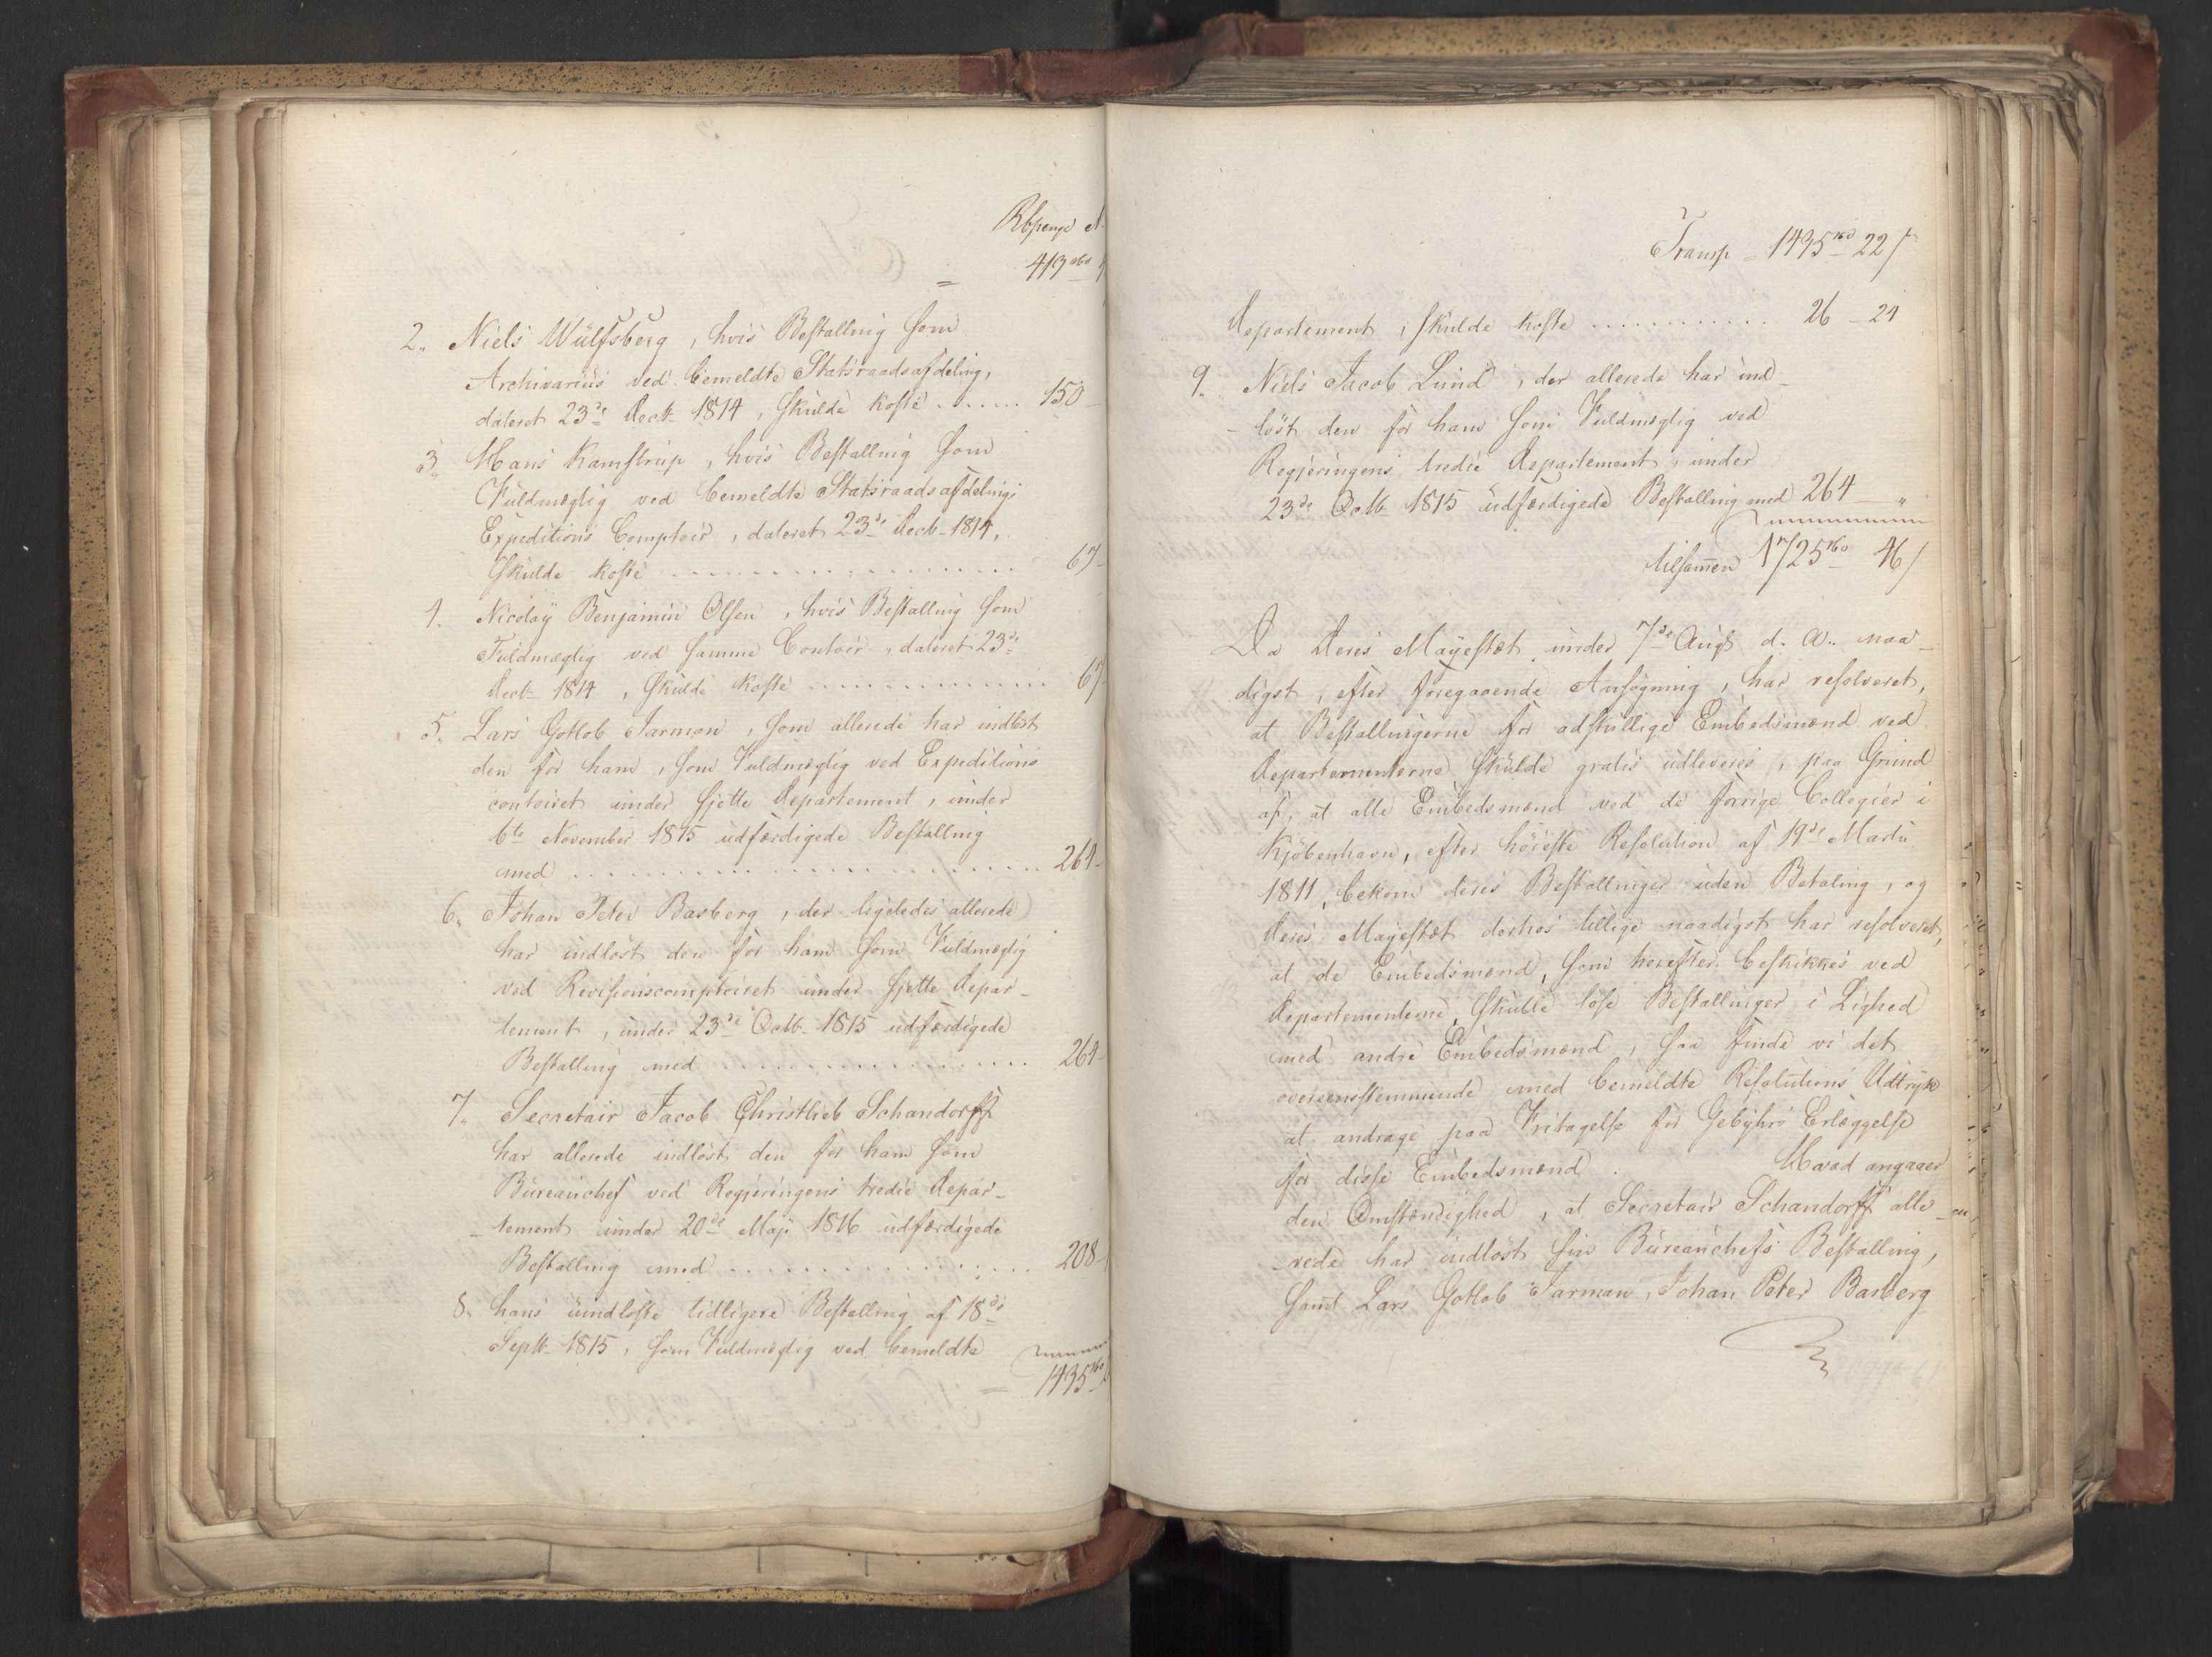 Rbpenge
= 413 rbd
2. Niels Wülfsberg, hvis Bestalling som
Archivarius ved bemeldte Statsraadsafdeling,
dateret 23de Decb. 1814, skulde koste ...... 150 -
3. Hans Kamstrup, hvis Bestalling som
Fuldmægtig ved bemeldte Statsraadsafdelings
Expeditions Comptoir, dateret 23de Decb. 1814,
skulde koste .................. 67 -
4. Nicolay Benjamin Olsen, hvis Bestalling som
Fuldmægtig ved samme Contoir, dateret 23de
Decb. 1814, skulde koste ............... 67
5. Lars Gotlob Farman, som allerede har indløst
den for ham, som Fuldmægtig ved Expeditions
contoiret under sjette Departement, under
6te November 1815 udfærdigede Bestalling
med .......................... 264 -
6. Johan Peter Basberg, der ligeledes allerede
har indløst den for ham som Fuldmægtig
ved Revisionscomptoiret under sjette Depar-
tement, under 23de Octb. 1815 udfærdigede
Bestalling med ................ 264 -
7. Secretair Jacob Christlieb Schandorff
har allerede indløst den for ham som
Bureauchef ved Regjeringens tredie Depar-
-tement under 20de Maji 1816 udfærdigede
Bestalling med ................ 208 -
8. hans uindløste tidligere Bestalling af 18de
Septb. 1815, som Fuldmægtig ved bemeldte
= 1435 rbd
Transp = 1435 rbd 22 s
Departement, skulde koste ............ 26 - 24
9. Niels Jacob Lund, der allerede har ind-
-løst den for ham som Fuldmægtig ved
Regjeringens tredie Departement, under
23de Octb. 1815 udfærdigede Bestalling med 264 - "
tilsam̄en 1725 rbd 46 s
Da Deres Majestæt under 7de Augs d. A. naa-
digst, efter foregaaende Ansøgning, har resolveret,
at Bestallingerne for adskillige Embedsmænd ved
Departementerne skulde gratis udleveres, paa Grund
af, at alle Embedsmænd ved de forrige Collegier i
Kjøbenhavn, efter høieste Resolution af 19de Martii
1811, bekom deres Bestallinger uden Betaling, og
Deres Majestæt derhos tillige naadigst har resolveret,
at de Embedsmænd, som herefter beskikkes ved
Departementerne, skulle løse Bestallinger i Lighed
med andre Embedsmænd, saa finde vi det
overeensstemmende med bemeldte Resolutions Udtryk
at andrage paa Fritagelse for Gebyhrs Erlæggelse
for disse Embedsmænd. Hvad angaaer
den Omstændighed, at Secretair Schandorff alle-
-rede har indløst sin Bureauchefs Bestalling,
samt Lars Gotlob Farman, Johan Peter Basberg